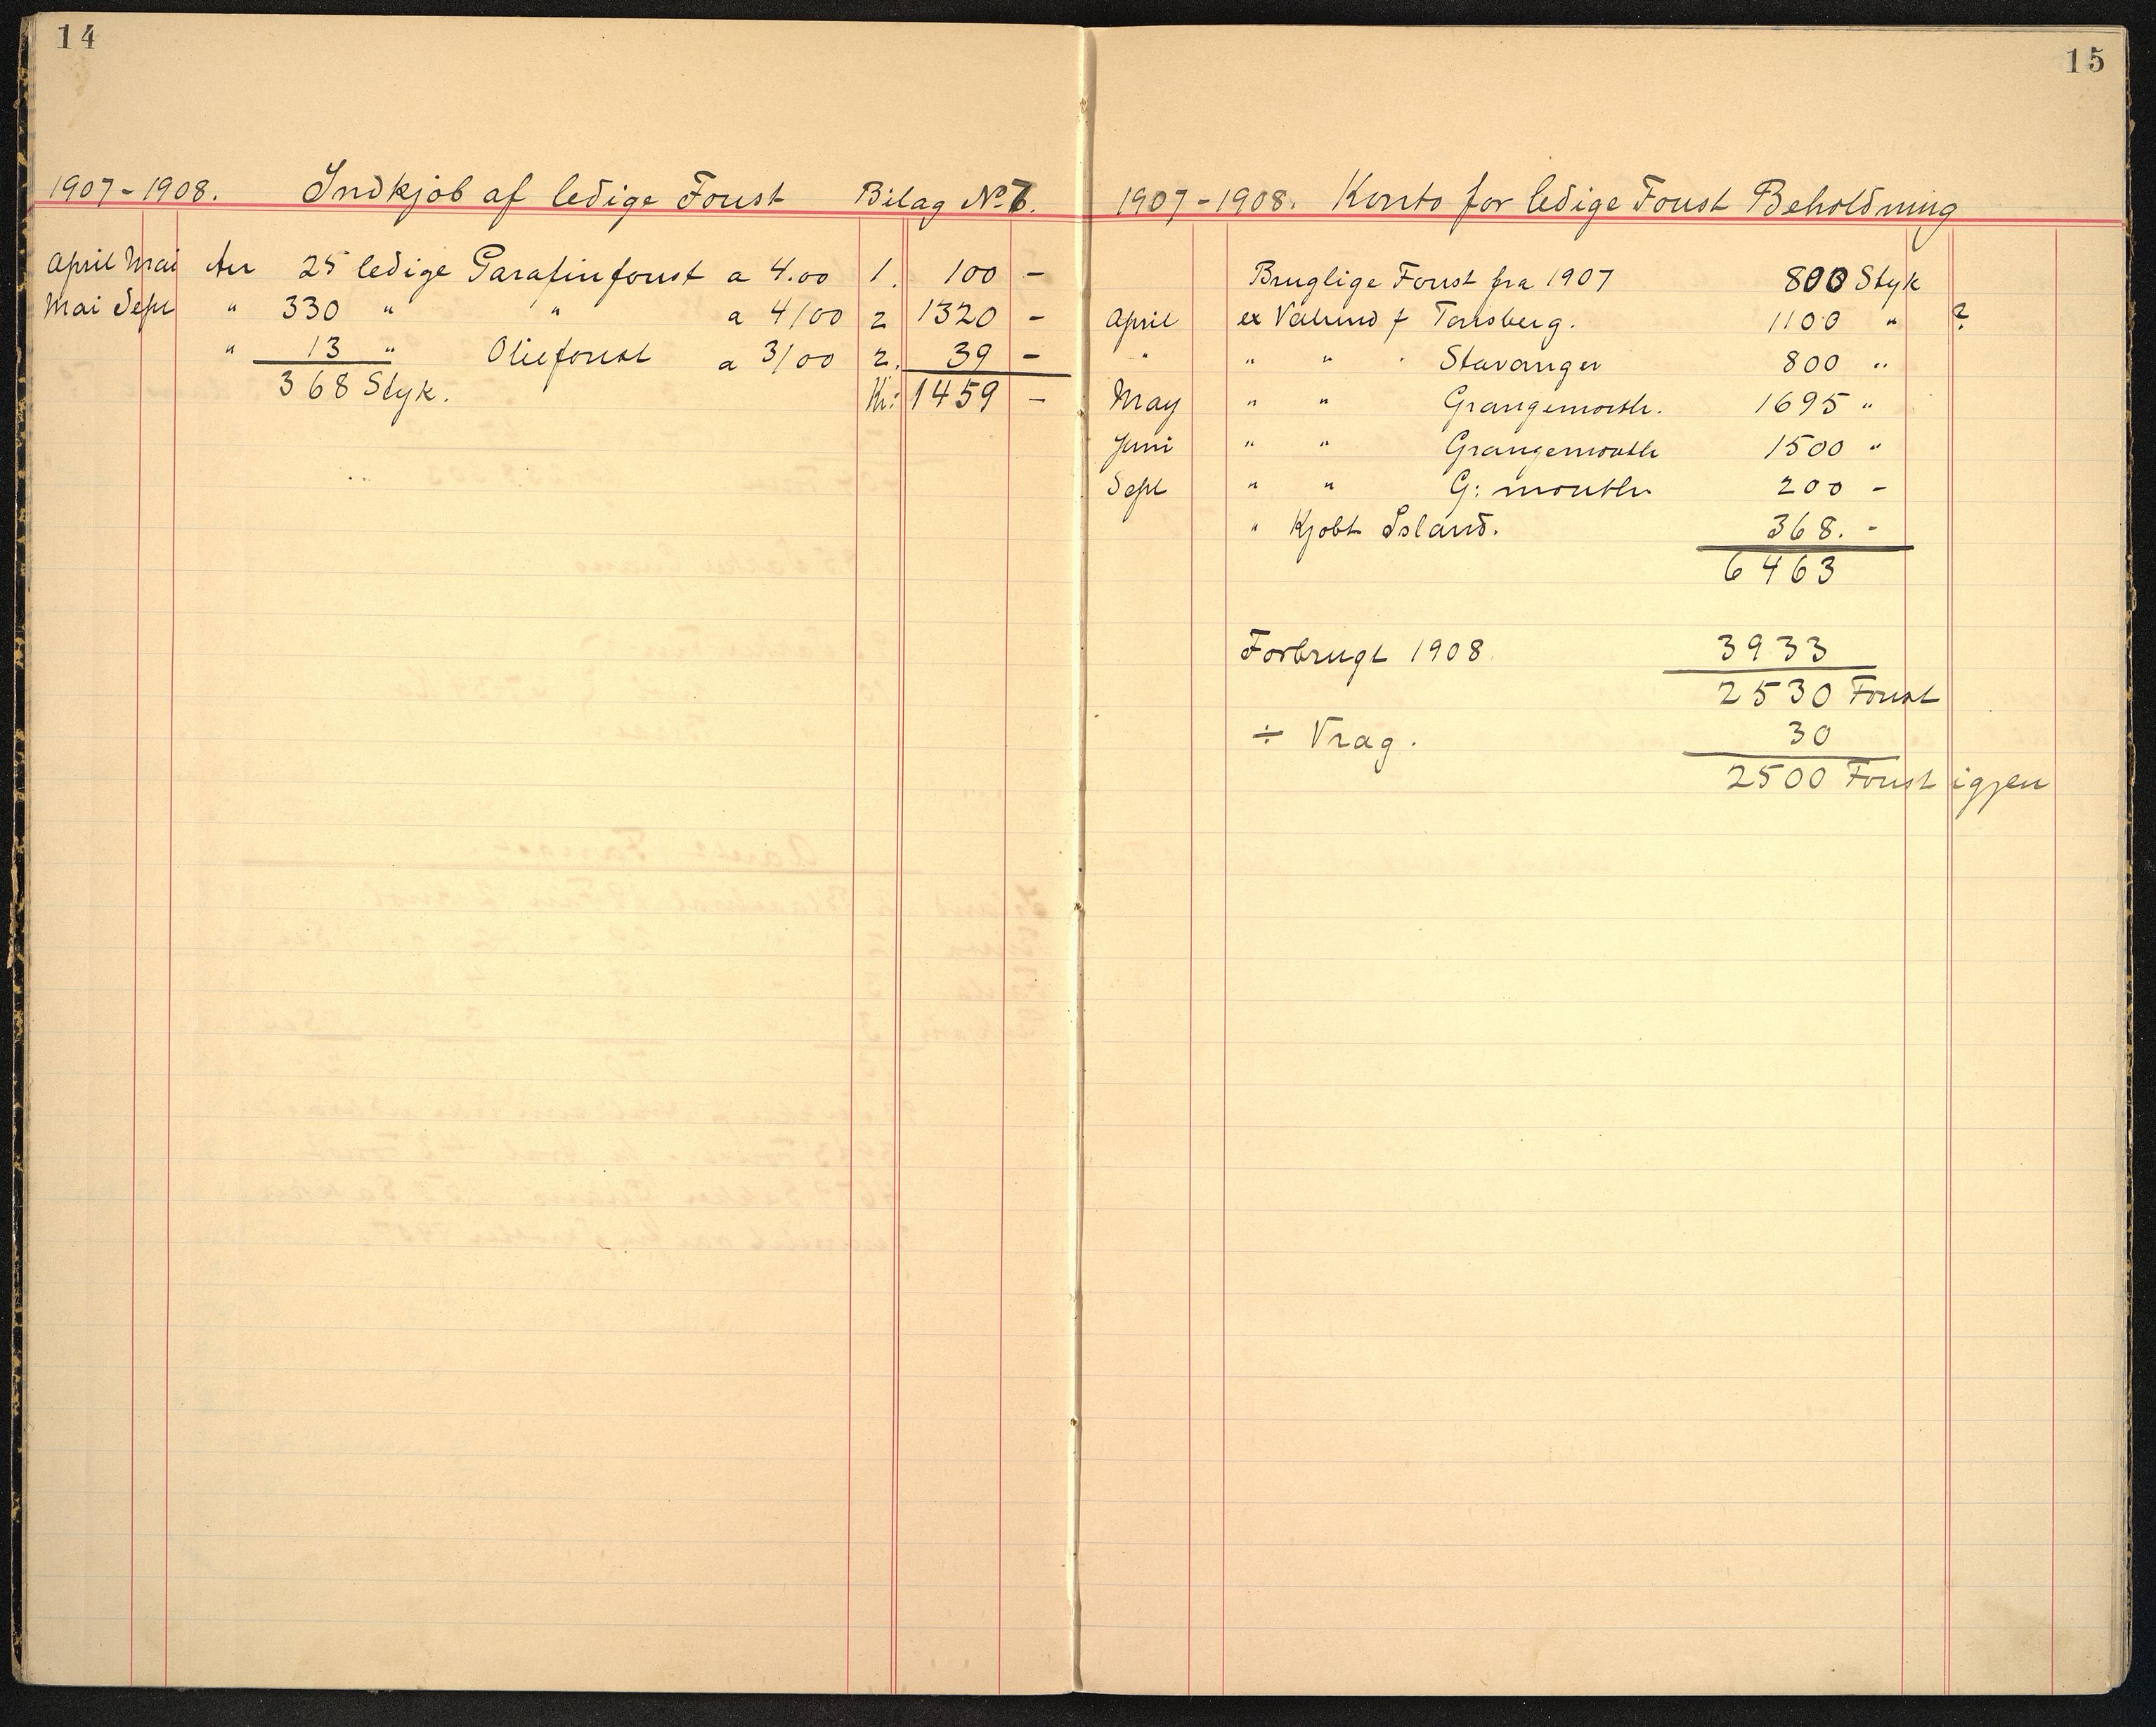 14
1907-1908. Indkjøb af ledige Foust Bilag No 7.
April Mai An 25 ledige Parafinfoust a 4.00 1. 100 -
Mai Sept " 330 " " a 4/00 2 1320 -
" 13 " Oliefoust a 3/00 2. 39 -
368 Styk. Kr: 1459 -
15
1907-1908. Konto for ledige Foust Beholdning
Bruglige Foust fra 1907 800 Styk
April ex Valund f Tønsberg. 1100 " ?
" " " " Stavanger 800 "
May " " Grangemouth. 1695 "
Juni " " Grangemouth 1500 "
Sept " " G: mouth. 200 -
" Kjøbt Island. 368. -
6463
Forbrugt 1908. 3933
2530 Foust
÷ Vrag. 30
2500 Foust igjen